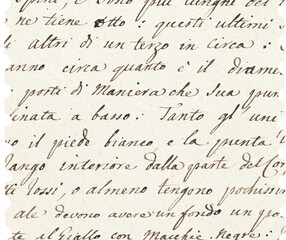 spine, e sono più lunghe del
ne tiene otto: questi ultimi s
li altri di un terzo in circa:
anno circa quanto è il diame
porti di Maniera che Sua pun
linata a basso: Tanto gl' uni
no il piede bianco, e la punta
fango interiore dalla parte del Cor
Rossi, o almeno tengono pochissim
ale devono avere un fondo un po
te al Giallo con Macchie Negre: